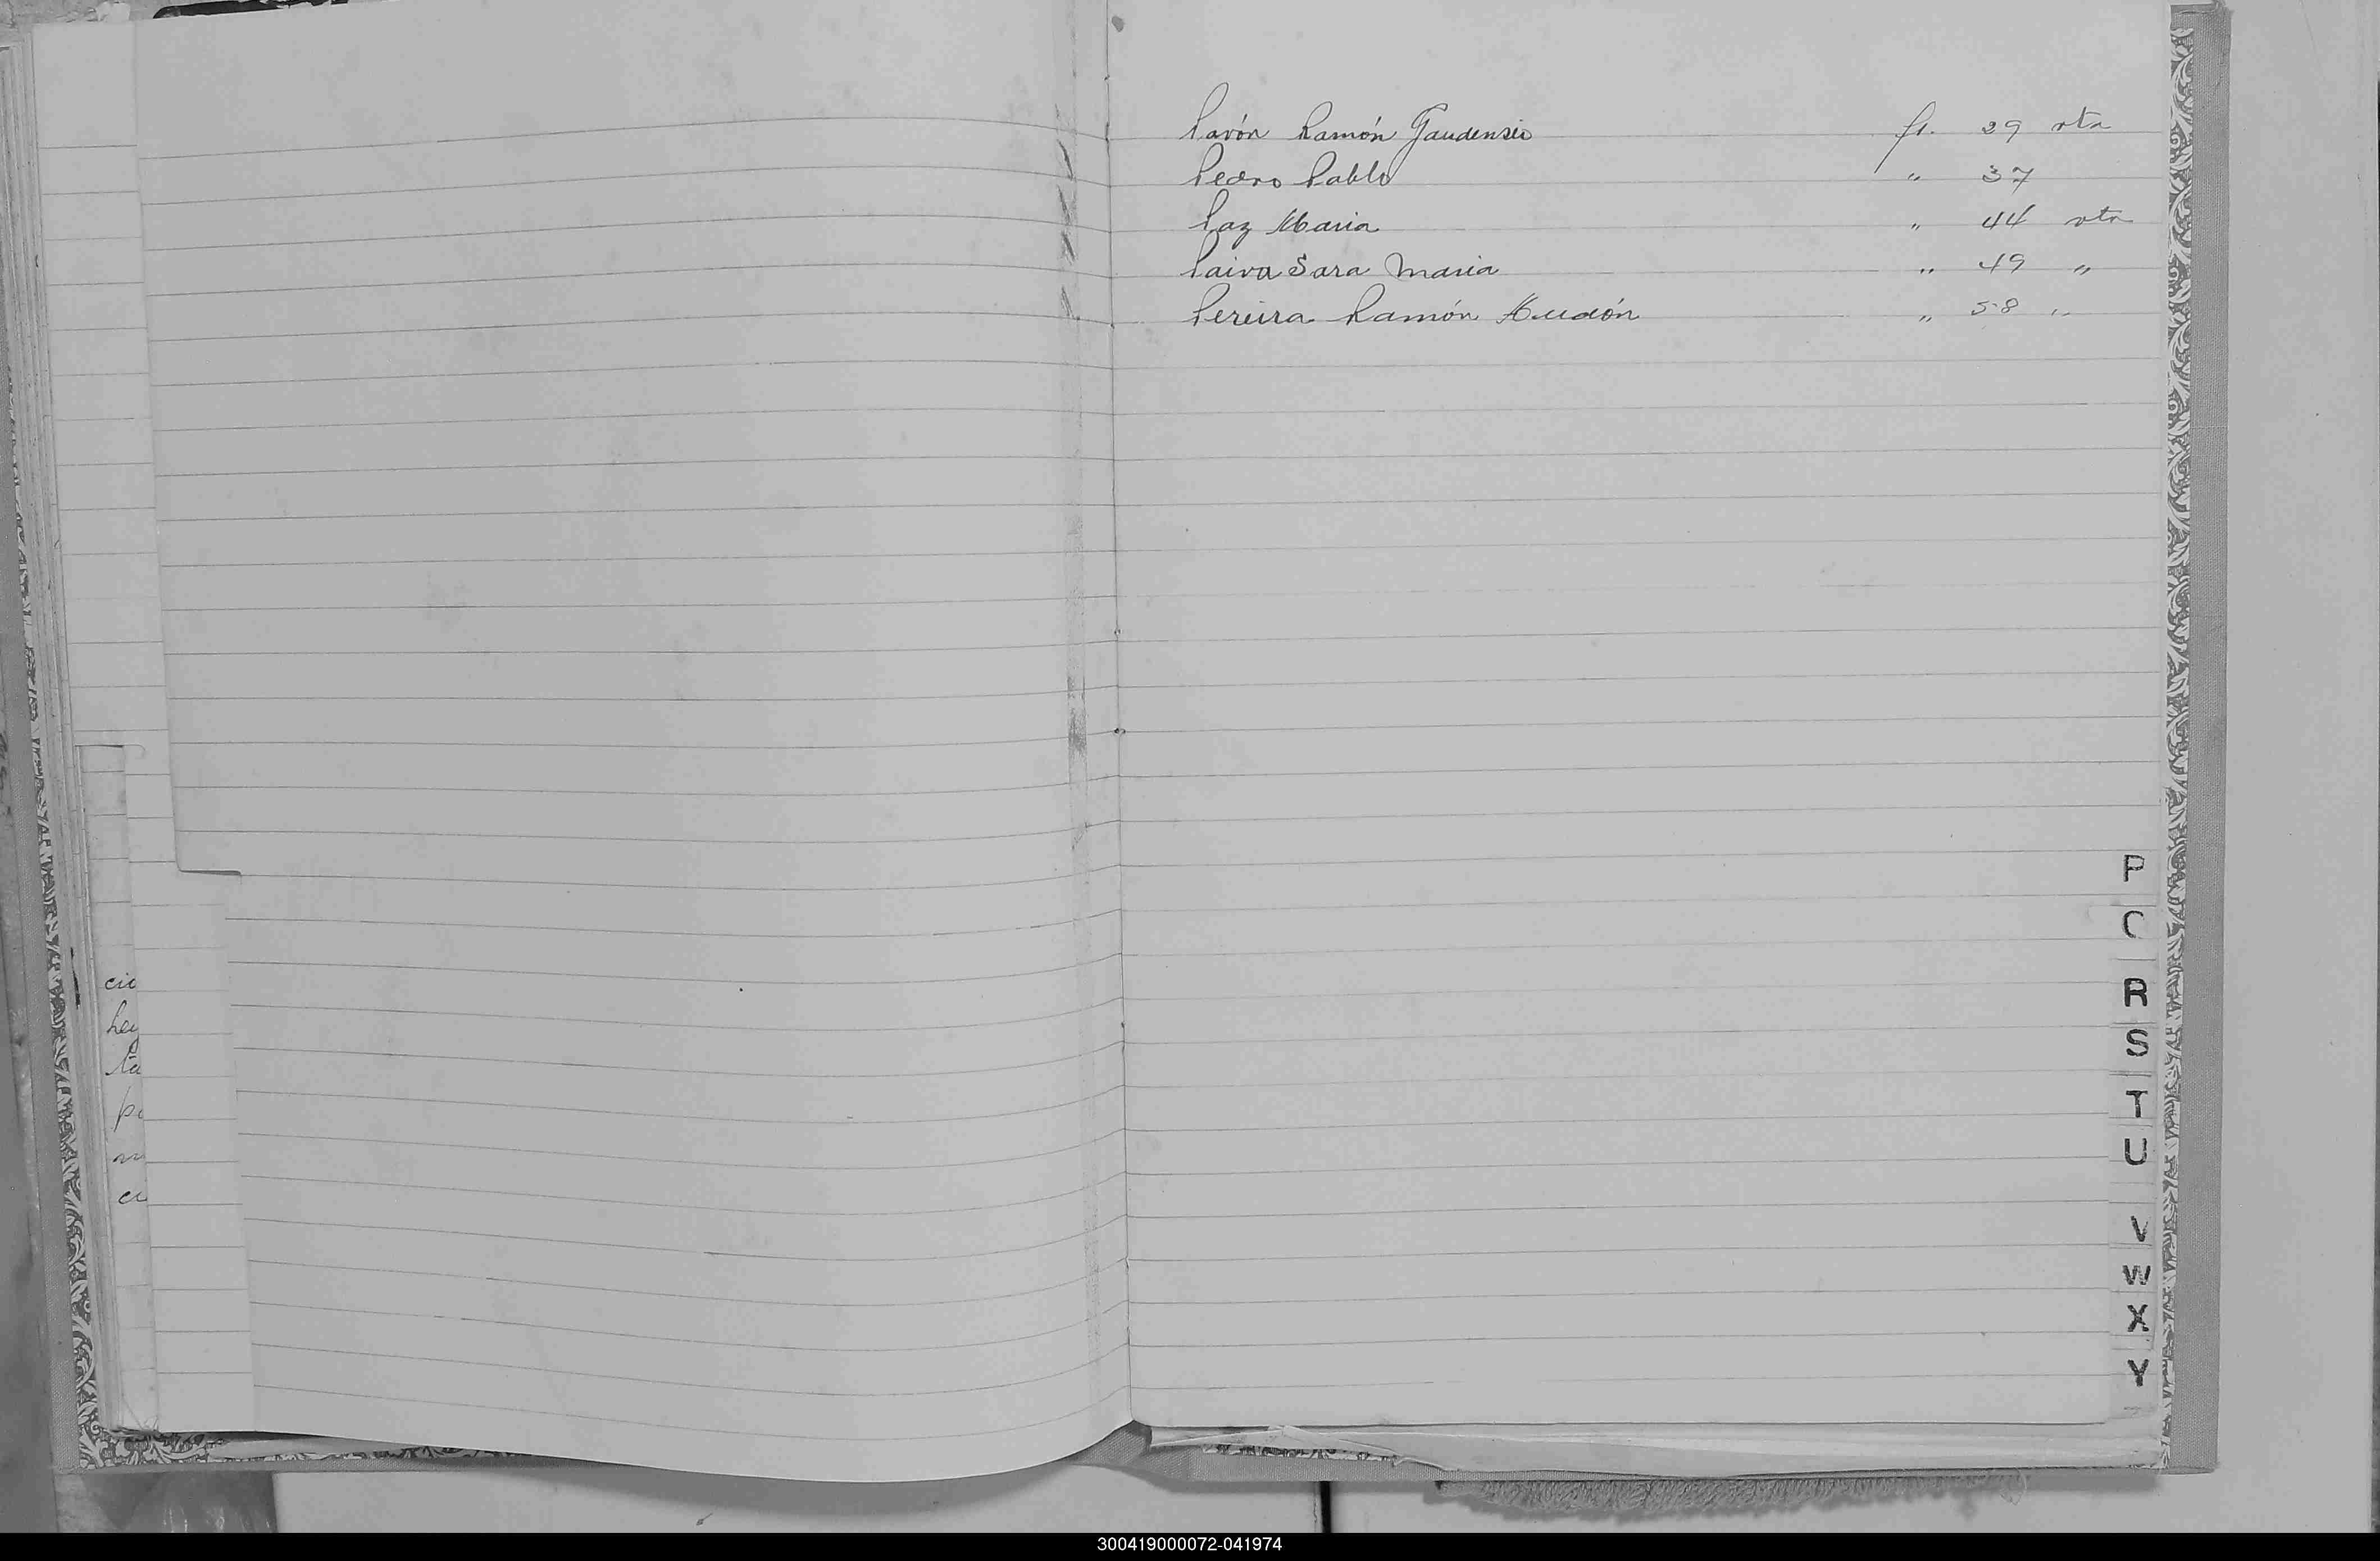 Pavón Ramón Gaudensio fs. 29 vta
Pedro Pablo " 37
Paz Maria " 44 vta
Paiva Sara Maria " 49 "
Pereira Ramón Audón " 58 "
P
R
S
T
U
V
W
X
Y
cio
la
300419000072-041974